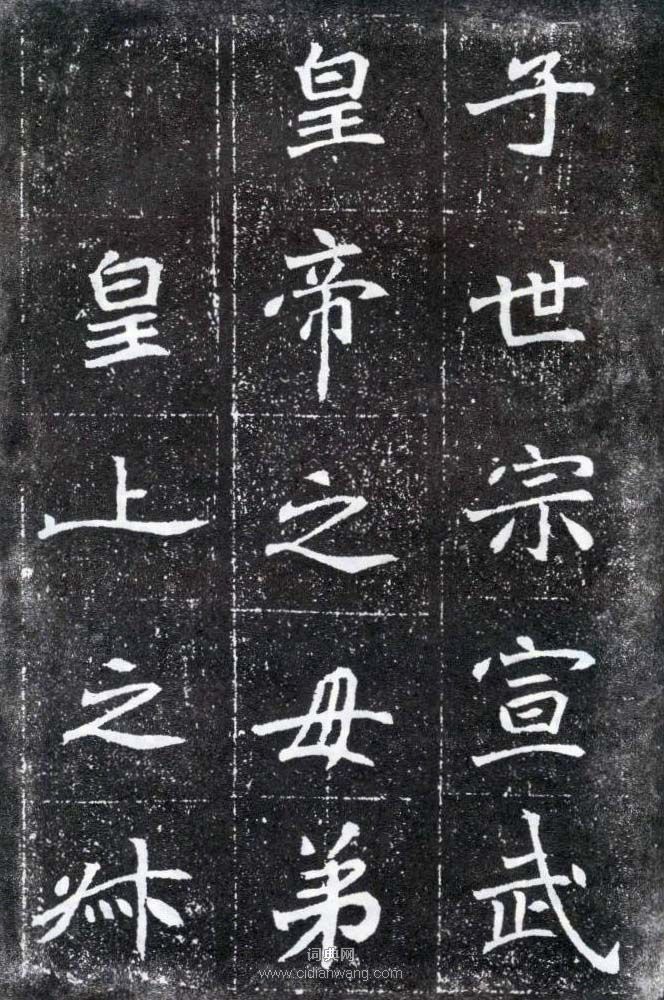 子世宗宣武
皇帝之母弟
皇上之叔
词典网
www.cidianwang.com